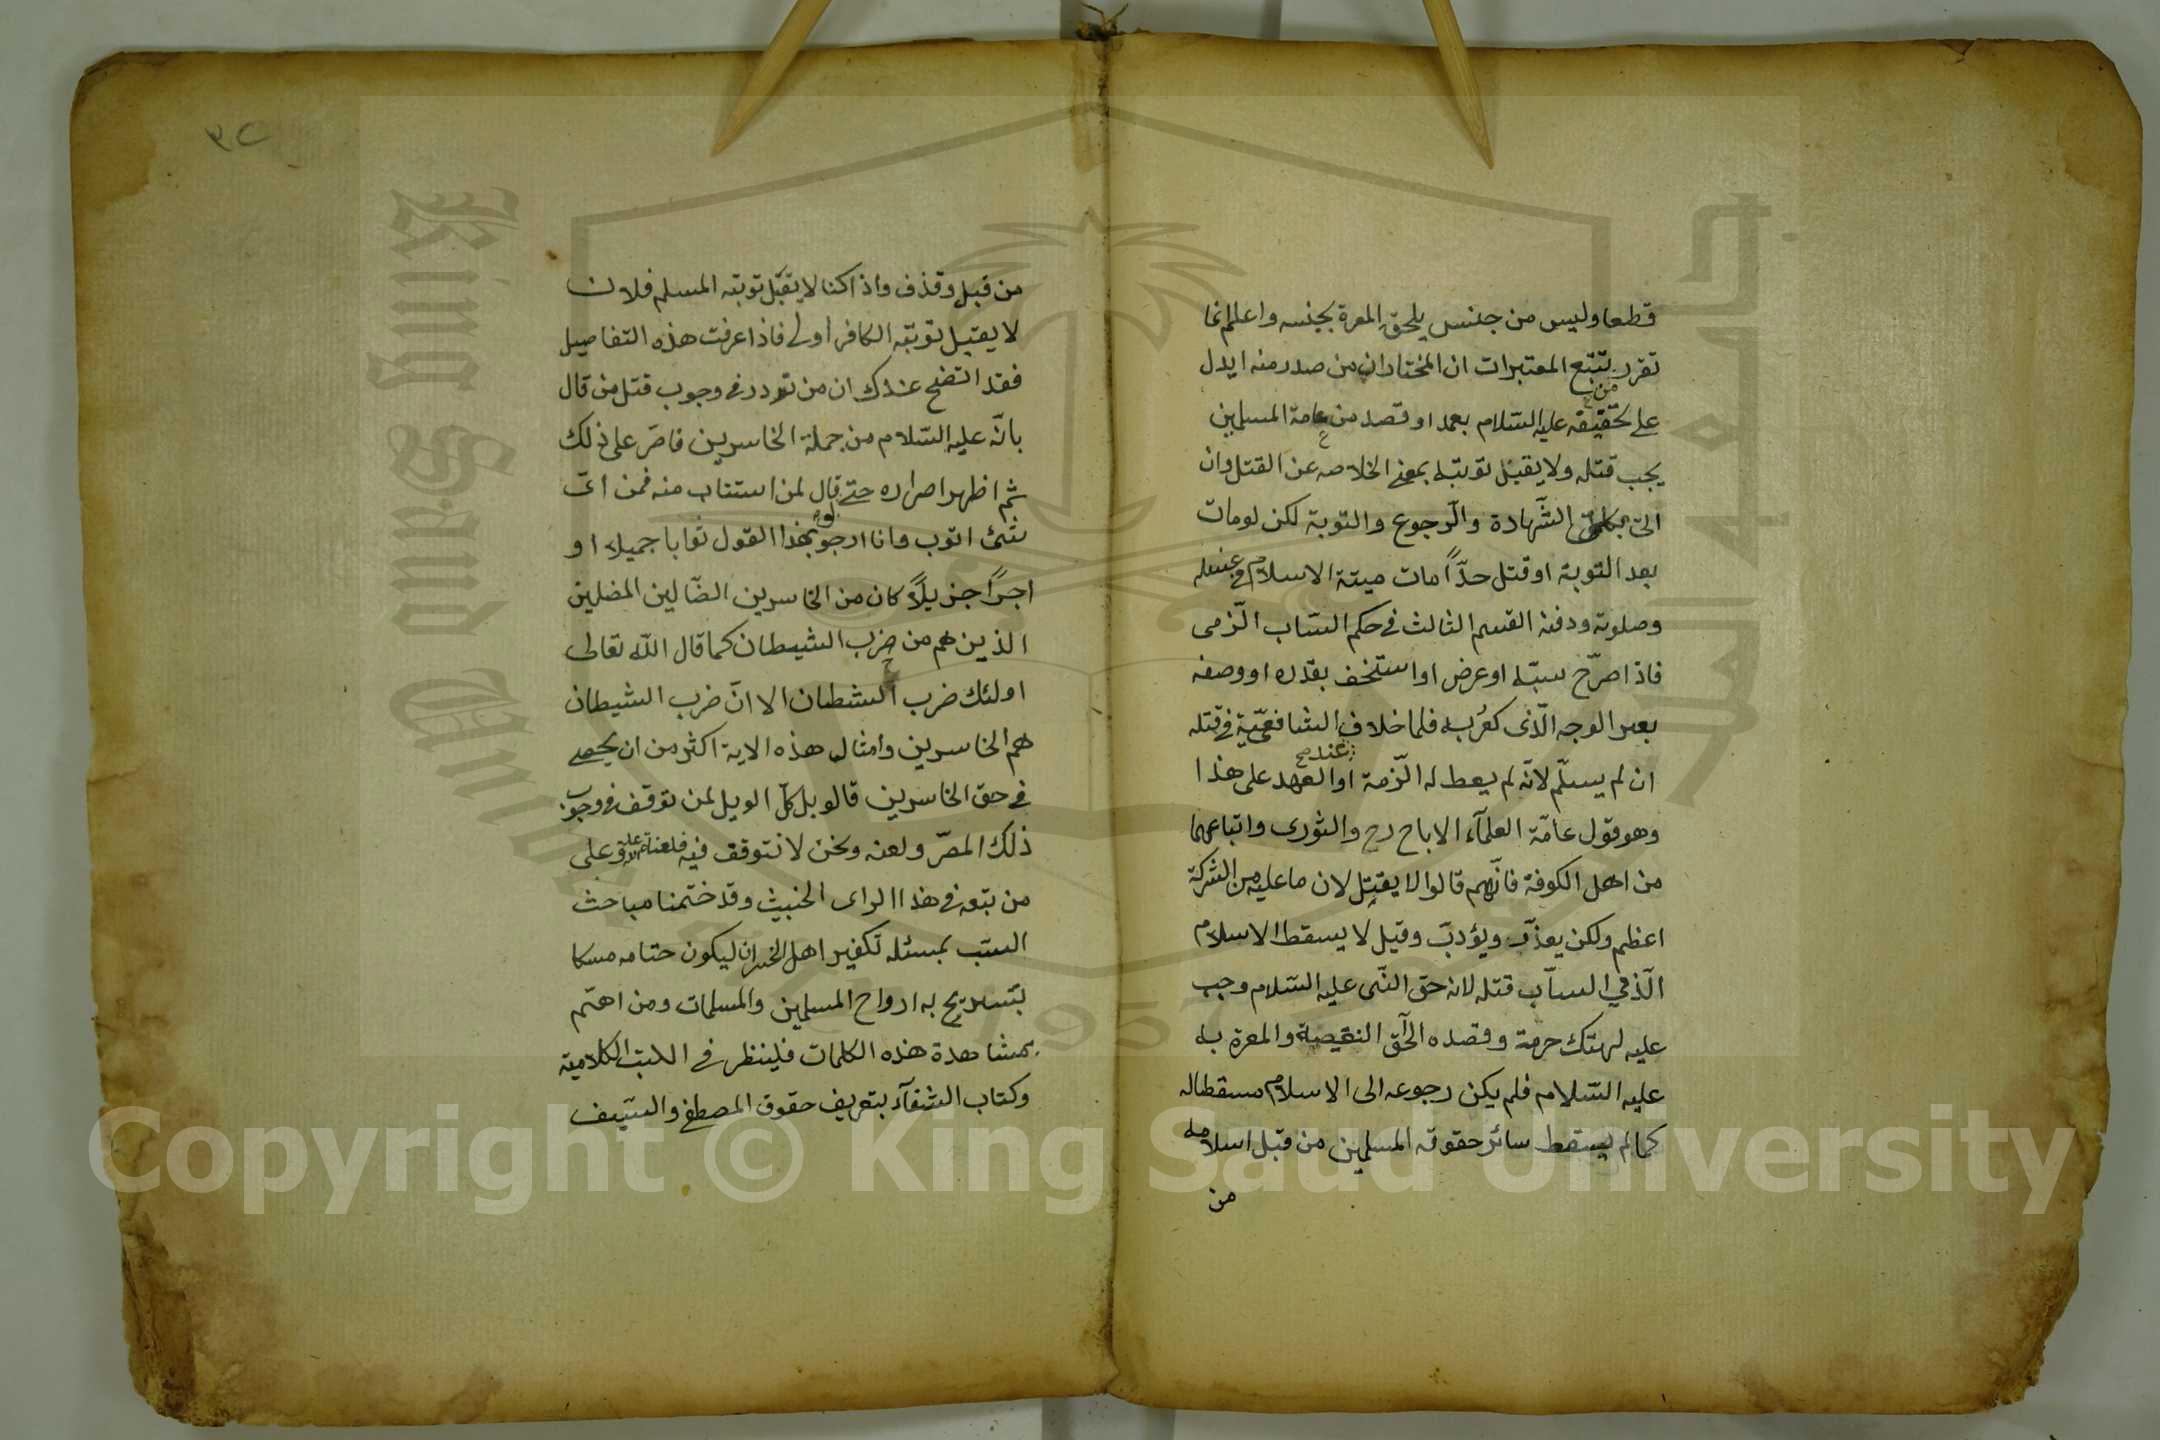 قطعا وليس من جنس يلحق المعرة بجنسه واعلم انما
تقرر بتتبع المعتبرات ان المختار ان من صدر منه ما يدل
على تحقيقه عليه السّلام بعمد او قصد من عامة المسلمين
يجب قتله ولا يقبل توبته بمعنى الخلاصه عن القتل وان
اتى بكلمتى الشّهادة والرجوع والتوبة لكن لو مات
بعد التوبة او قتل حدّاً مات ميتة الاسلام فى غسله
وصلوته ودفنه القسم الثالث فى حكم السّاب الزّمى
فاذا صرّح بسبّه او عرض او استخف بقدره او وصفه
بعير الوجه الّذى كفر به فلما خلاف الشافعيّة فى قتله
عندنا
ان لم يسلّم لانّه لم يعط له الزّمة او العهد على هذا
وهو قول عامّة العلمآء الا اباح رح والثورى واتباعهما
من اهل الكوفة فانّهم قالوا لا يقتل لان ما عليه من الشركة
اعظم ولكن يعذّر ويؤدّب وقيل لا يسقط الاسلام
الّذمى السّاب قتله لانه حق النّبى عليه السّلام وجب
عليه لهتك حرمة وقصده الحآق النقيصة والمعرة به
عليه السّلام فلم يكن رجوعه الى الاسلام مسقطا له
كما لم يسقط سائر حقوقه المسلمين من قبل اسلامه
من
٣٢
من قبل وقذف واذا كنا لا يقبّل توبته المسلم فلان
لا يقبل توبتّه الكافر اولى فاذا عرفت هذه التفاصيل
فقد اتضح عندك ان من تردد فى وجوب قتل من قال
بانّه عليه السّلام من جملة الخاسرين فاصرّ على ذلك
ثم اظهر اصراره حتى قال لمن استتاب منه فمن اىّ
شئ اتوب وانا ارجو بهذا القول ثوابا جميلا او
اجرًا جزيلاً كان من الخاسرين الضّالين المضلين
الذين هم من حزب الشيطان كما قال الله تعالى
اولئك ضرب الشطان الا انّ ضرب الشيطان
هم الخاسرين وامثال هذه الاية اكثر من ان يحصى
فى حق الخاسرين قالوبل كلّ الويل لمن توقف فى وجوب
ذلك المصرّ ولعنه ونحن لا نتوقف فيه فلعنة الله عليه وعلى
من تبعه فى هذا الراى الخبيث وقد ختمنا مباحث
السّب بمسئله تكفير اهل الخسران ليكون ختامه مسكا
بتسريح به ارواح المسلمين والمسلمات ومن اهتم
بمشاهدة هذه الكلمات فلينظر فى الكتب الكلامية
وكتاب الشفآء بتعريف حقوق المصطفى والسّيف
King Saud University
Copyright © King Saud University
1957